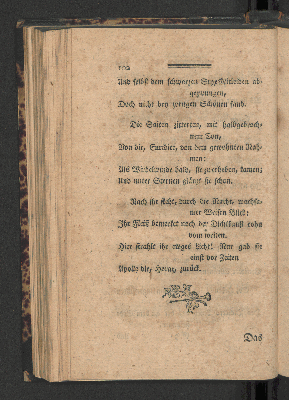 102
Und selbst dem schwarzen Styx Melodien ab-
gezwungen,
Doch nicht den zweyten Schönen fand.
Die Saiten zitterten, mit halbgebroch-
nem Ton,
Von die, Euridice, von dem gewohnten Nah-
men:
Als Wirbelwinde bald, sie zu erheben, kamen;
Und unter Sternen glänzt sie schon.
Nach ihr sieht, durch die Nacht, wachsa-
mer Weisen Blick:
Ihr Fleiß bemerket noch der Dichtkunst Lohn
vom weiten.
Hier strahlt ihr ewges Licht! Nur gab sie
einst vor Zeiten
Apollo dir, Horaz, zurück.
Das